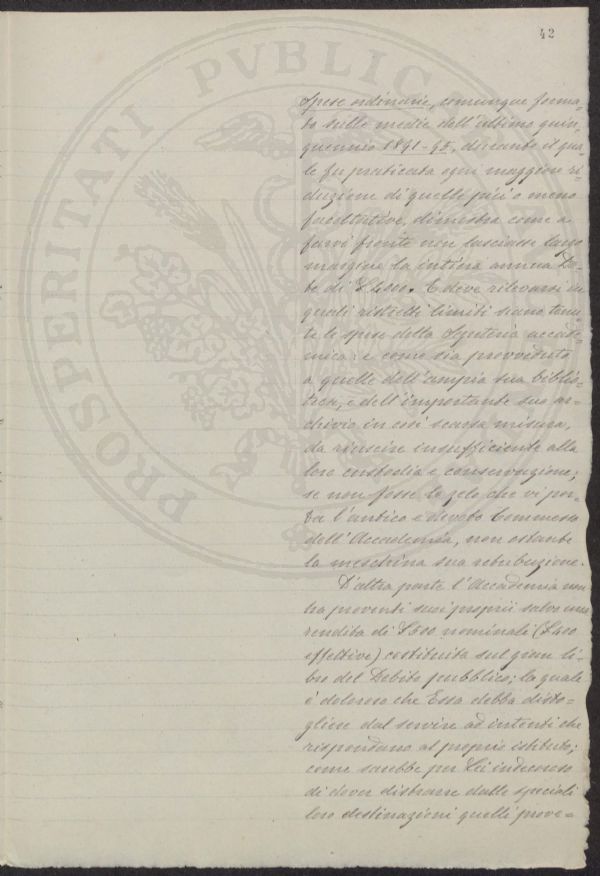 42
PROSPERITATI PVBLICAE
spese ordinarie, comunque forma=
to sulle medie dell'ultimo quin=
quennio 1891-95, durante il qua=
le fu praticata ogni maggiore ri=
duzione di quelle più o meno
facoltative, dimostra come a
farvi fronte non lasciasse largo
margine la intiera annua Do=
te di £. E deve rilevarsi in
quali ristretti limiti siano tenu=
te le spese della Segreteria accade=
mica: e come sia provveduto
a quelle dell'ampia sua biblio=
teca, e dell'importante suo ar=
chivio in così scarsa misura,
da riuscire insufficiente alla
loro custodia e conservazione;
se non fosse lo zelo che vi por=
ta l'antico e devoto Commesso
dell'Accademia, non ostante
la meschina sua retribuzione.
D'altra parte l'Accademia non
ha proventi suoi proprii salvo una
rendita di £500 nominali (£400
effettive) costituita sul gran li=
bro del Debito pubblico; la quale
è doloroso che Essa debba disto=
gliere dal servire ad intenti che
rispondano al proprio istituto;
come sarebbe per Lei indecoroso
di dover distrarre dalle speciali
loro destinazioni quelli prove=